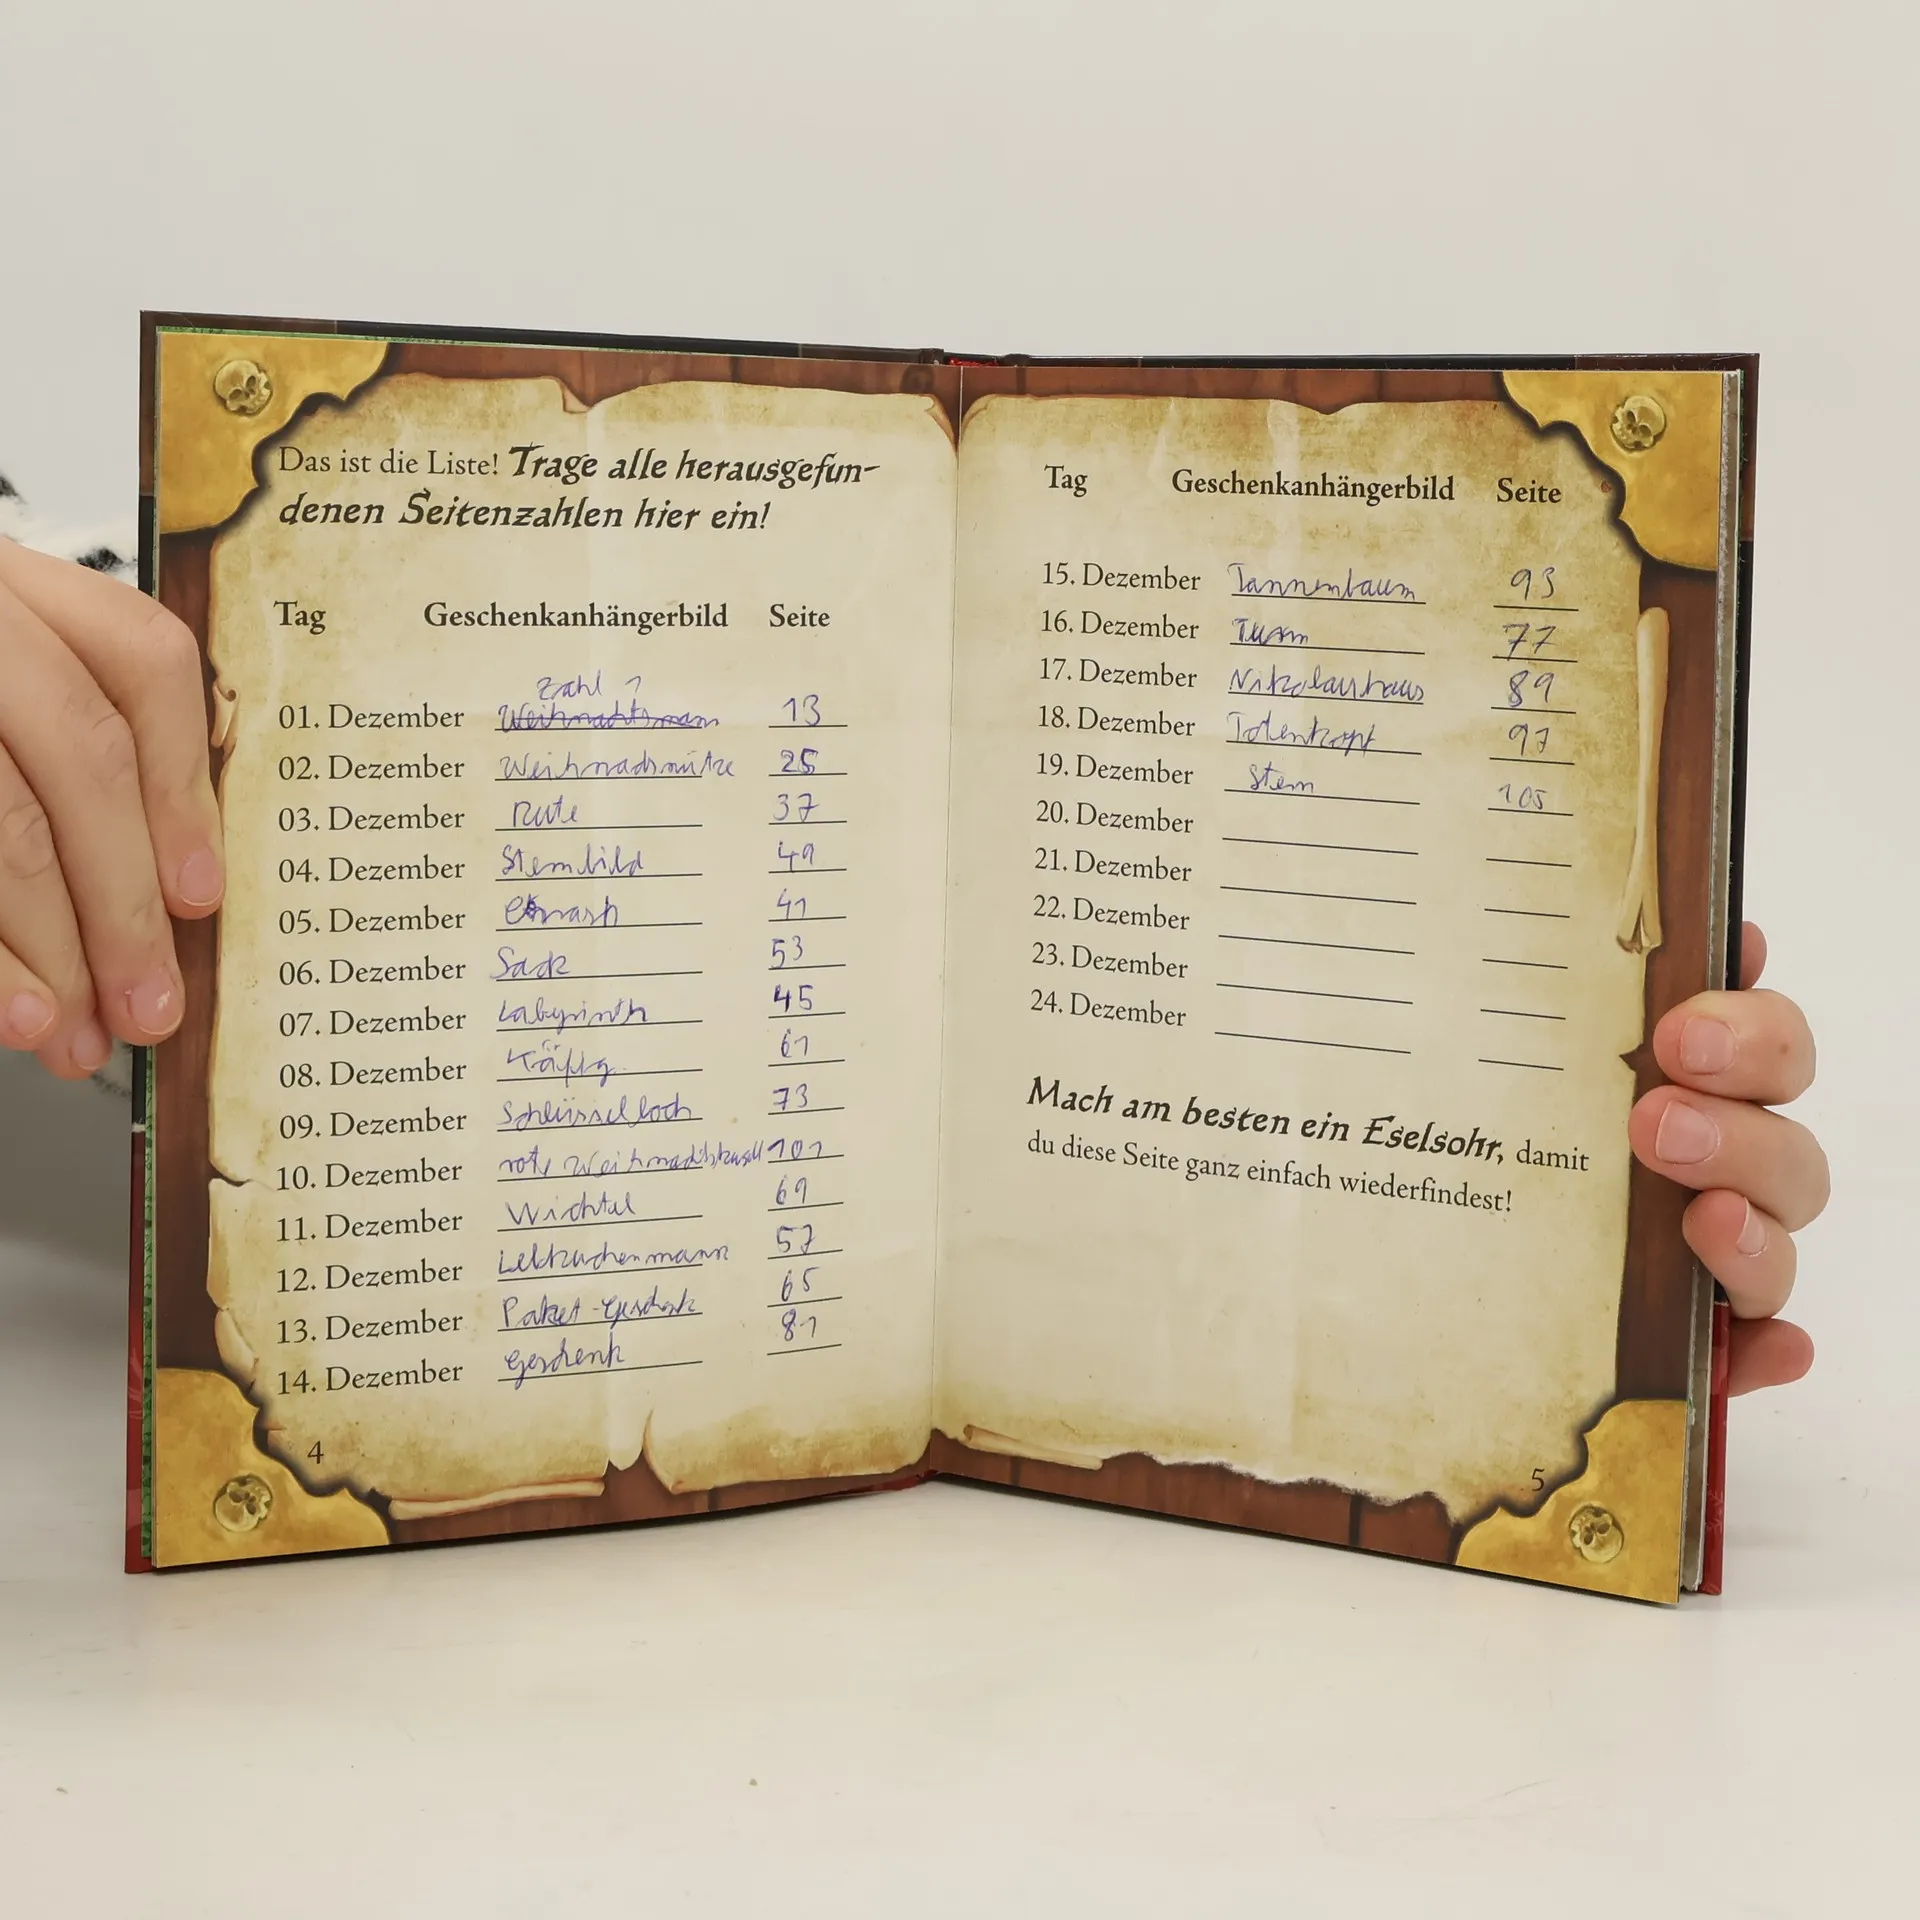 Das ist die Liste! Trage alle herausgefun-
denen Seitenzahlen hier ein!
Tag Geschenkanhängerbild Seite
Zahl 1
01. Dezember Weihnachtsmann 13
02. Dezember Weihnadsmütze 25
03. Dezember Rute 37
04. Dezember Sternbild 49
05. Dezember 41
06. Dezember Sack 53
07. Dezember Labyrinth 45
08. Dezember Käfig 61
09. Dezember Schlüsselloch 73
10. Dezember rote 101
11. Dezember Wichtel 69
12. Dezember Lebkuchenmann 57
13. Dezember Paket-Geschenk 65
14. Dezember Geschenk 81
4
Tag Geschenkanhängerbild Seite
15. Dezember Tannenbaum 93
16. Dezember Turm 77
17. Dezember Nikolaushaus 89
18. Dezember Totenkopf 97
19. Dezember Stern 105
20. Dezember
21. Dezember
22. Dezember
23. Dezember
24. Dezember
Mach am besten ein Eselsohr, damit
du diese Seite ganz einfach wiederfindest!
5